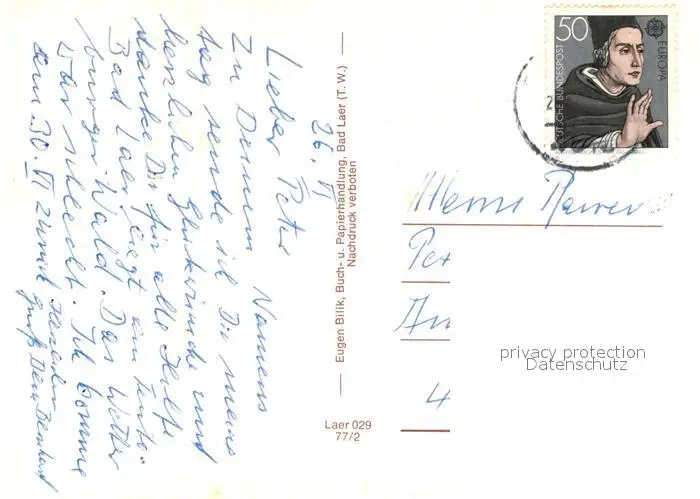 26. VI
Lieber Peter
Zu Deinem Namens
tag sende ich Dir meine
herzlichen Glückwünsche und
danke Dir für alle Hilfe
Bad Laer liegt am Teuto-
burger Wald. Das Wetter
war schlecht. Ich komme
am 30. VI zurück Herzlichen
Gruß Dein Bernhard
Eugen Bilik, Buch- u. Papierhandlung, Bad Laer (T. W.)
Nachdruck verboten
Laer 029
77/2
50
DEUTSCHE BUNDESPOST
EUROPA
Herrn
Pet
An
4
privacy protection
Datenschutz